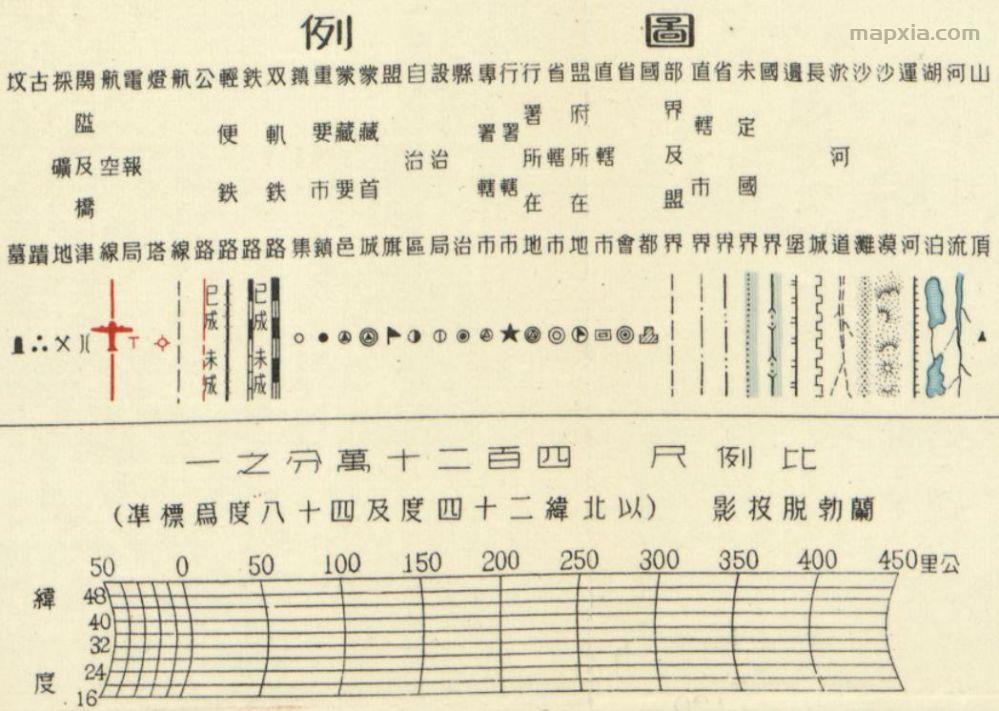 mapxia.com
圖例
山頂
河流
湖泊
運河
沙漠
沙灘
淤河道
長城
邊堡
國界
未定國界
省界
直轄市界
部界及盟界
國都
省會
直轄市
盟府所在地
省轄市
行署所在地
行署轄市
專署轄市
縣治
設治局
自治區
盟旗
蒙藏首城
蒙藏要邑
重要市鎮
鎮集
双軌鉄路
鉄路
輕便鉄路
公路
航線
燈塔
電報局
航空線
關隘及橋津
採礦地
古蹟
坟墓
已成 未成
已成 未成
比例尺 四百二十萬分之一
蘭勃脫投影 (以北緯二十四度及四十八度爲標準)
50 0 50 100 150 200 250 300 350 400 450 公里
緯度
48
40
32
24
16